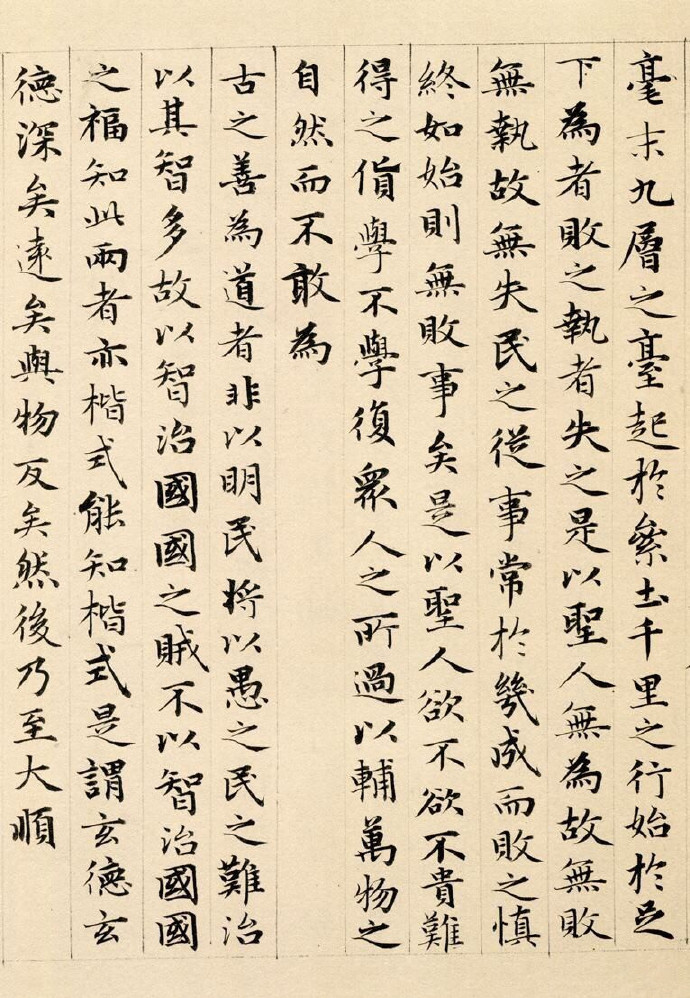 毫末九層之臺起於絫土千里之行始於足
下為者敗之執者失之是以聖人無為故無敗
無執故無失民之從事常於幾成而敗之慎
終如始則無敗事矣是以聖人欲不欲不貴難
得之貨學不學復眾人之所過以輔萬物之
自然而不敢為
古之善為道者非以明民将以愚之民之難治
以其智多故以智治國國之賊不以智治國國
之福知此兩者亦楷式能知楷式是謂玄德玄
德深矣遠矣與物反矣然後乃至大順